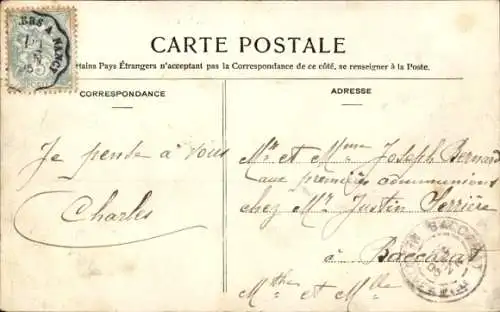 ERS A NANCY
CARTE POSTALE
tains Pays Étrangers n'acceptant pas la Correspondance de ce côté, se renseigner à la Poste.
CORRESPONDANCE
Je pense à vous
Charles
ADRESSE
Mr et Mme Joseph Bernard
aux premières communions
chez Mr Justin Ferrière
à Baccarat
Mthe et Mlle
BACCARAT